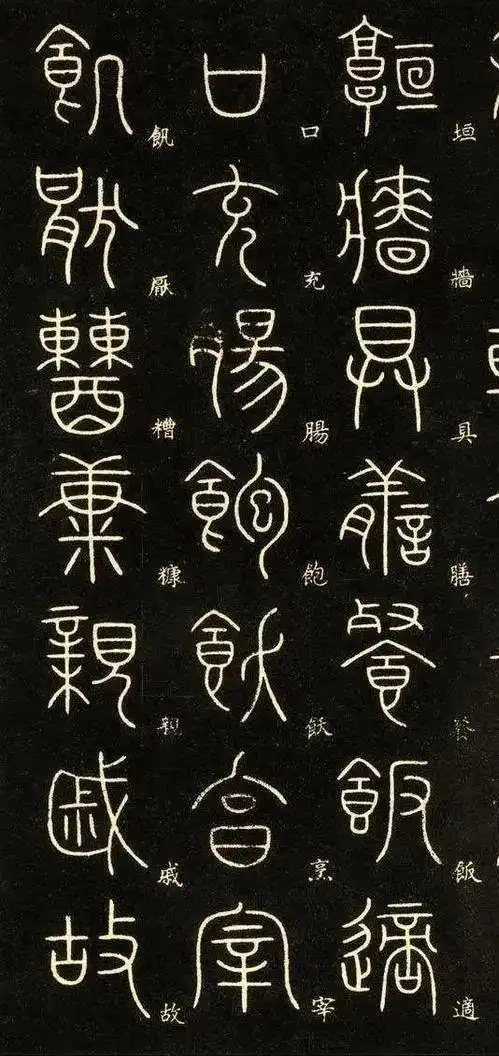 垣牆具膳餐飯適
口充腸飽飫烹宰
飢厭糟糠親戚故